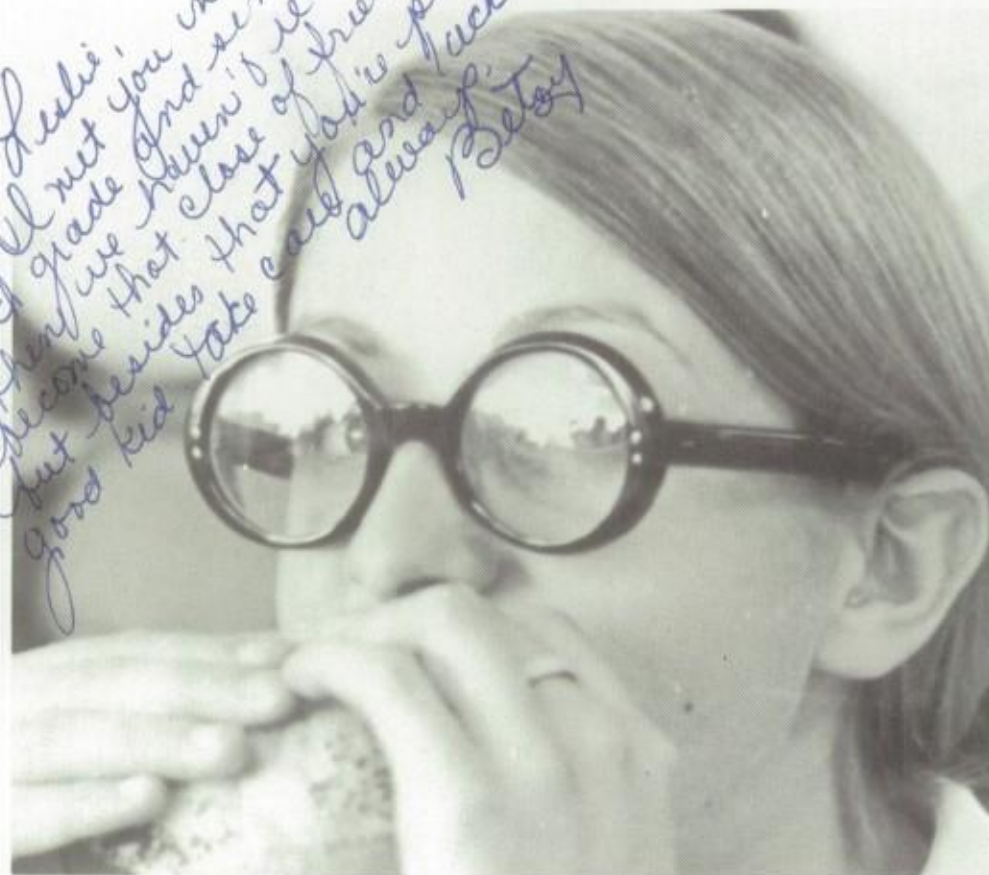 Leslie,
I met you
grade and
then we haven't
become that close of
but besides that you're
good kid Take care and luck
always,
Betsy